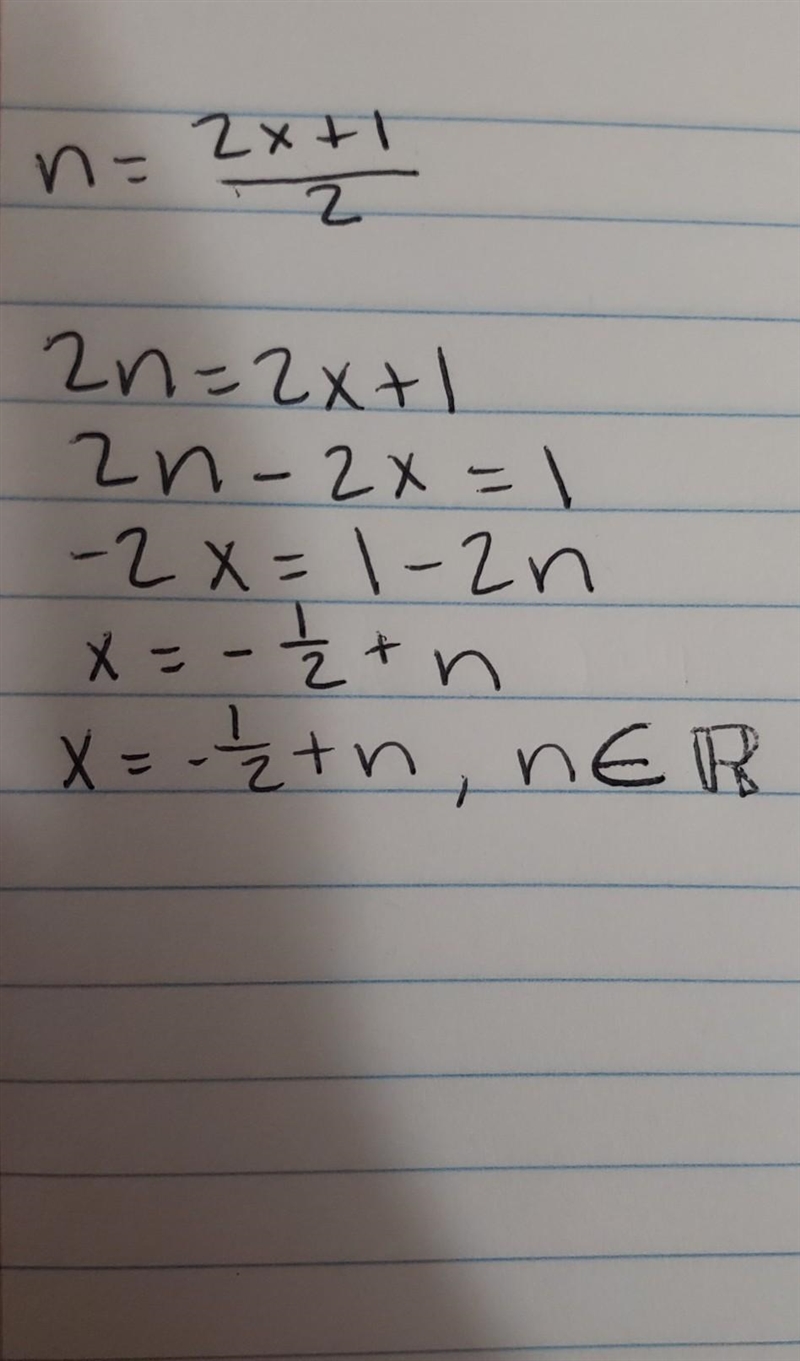 n = (2x+1)/2
2n = 2x+1
2n - 2x = 1
-2x = 1 - 2n
x = - 1/2 + n
x = - 1/2 + n, n ∈ ℝ